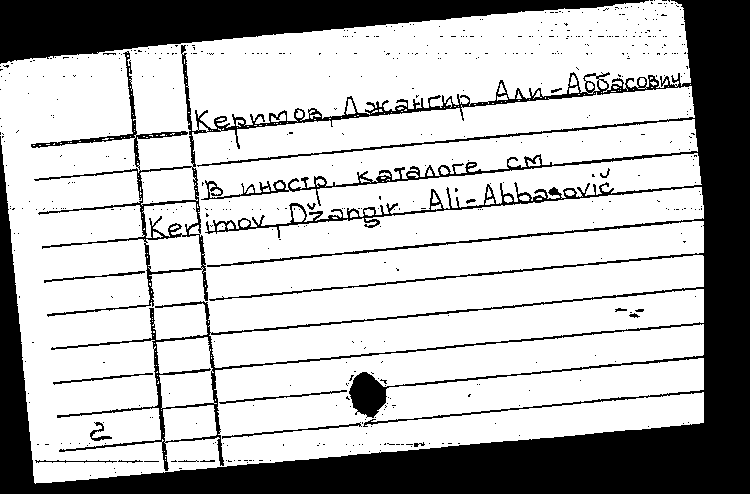 Керимов, Джангир Али-Аббасович
В иностр. каталоге см.
Kerimov, Džangir Ali-Abbasovič
2